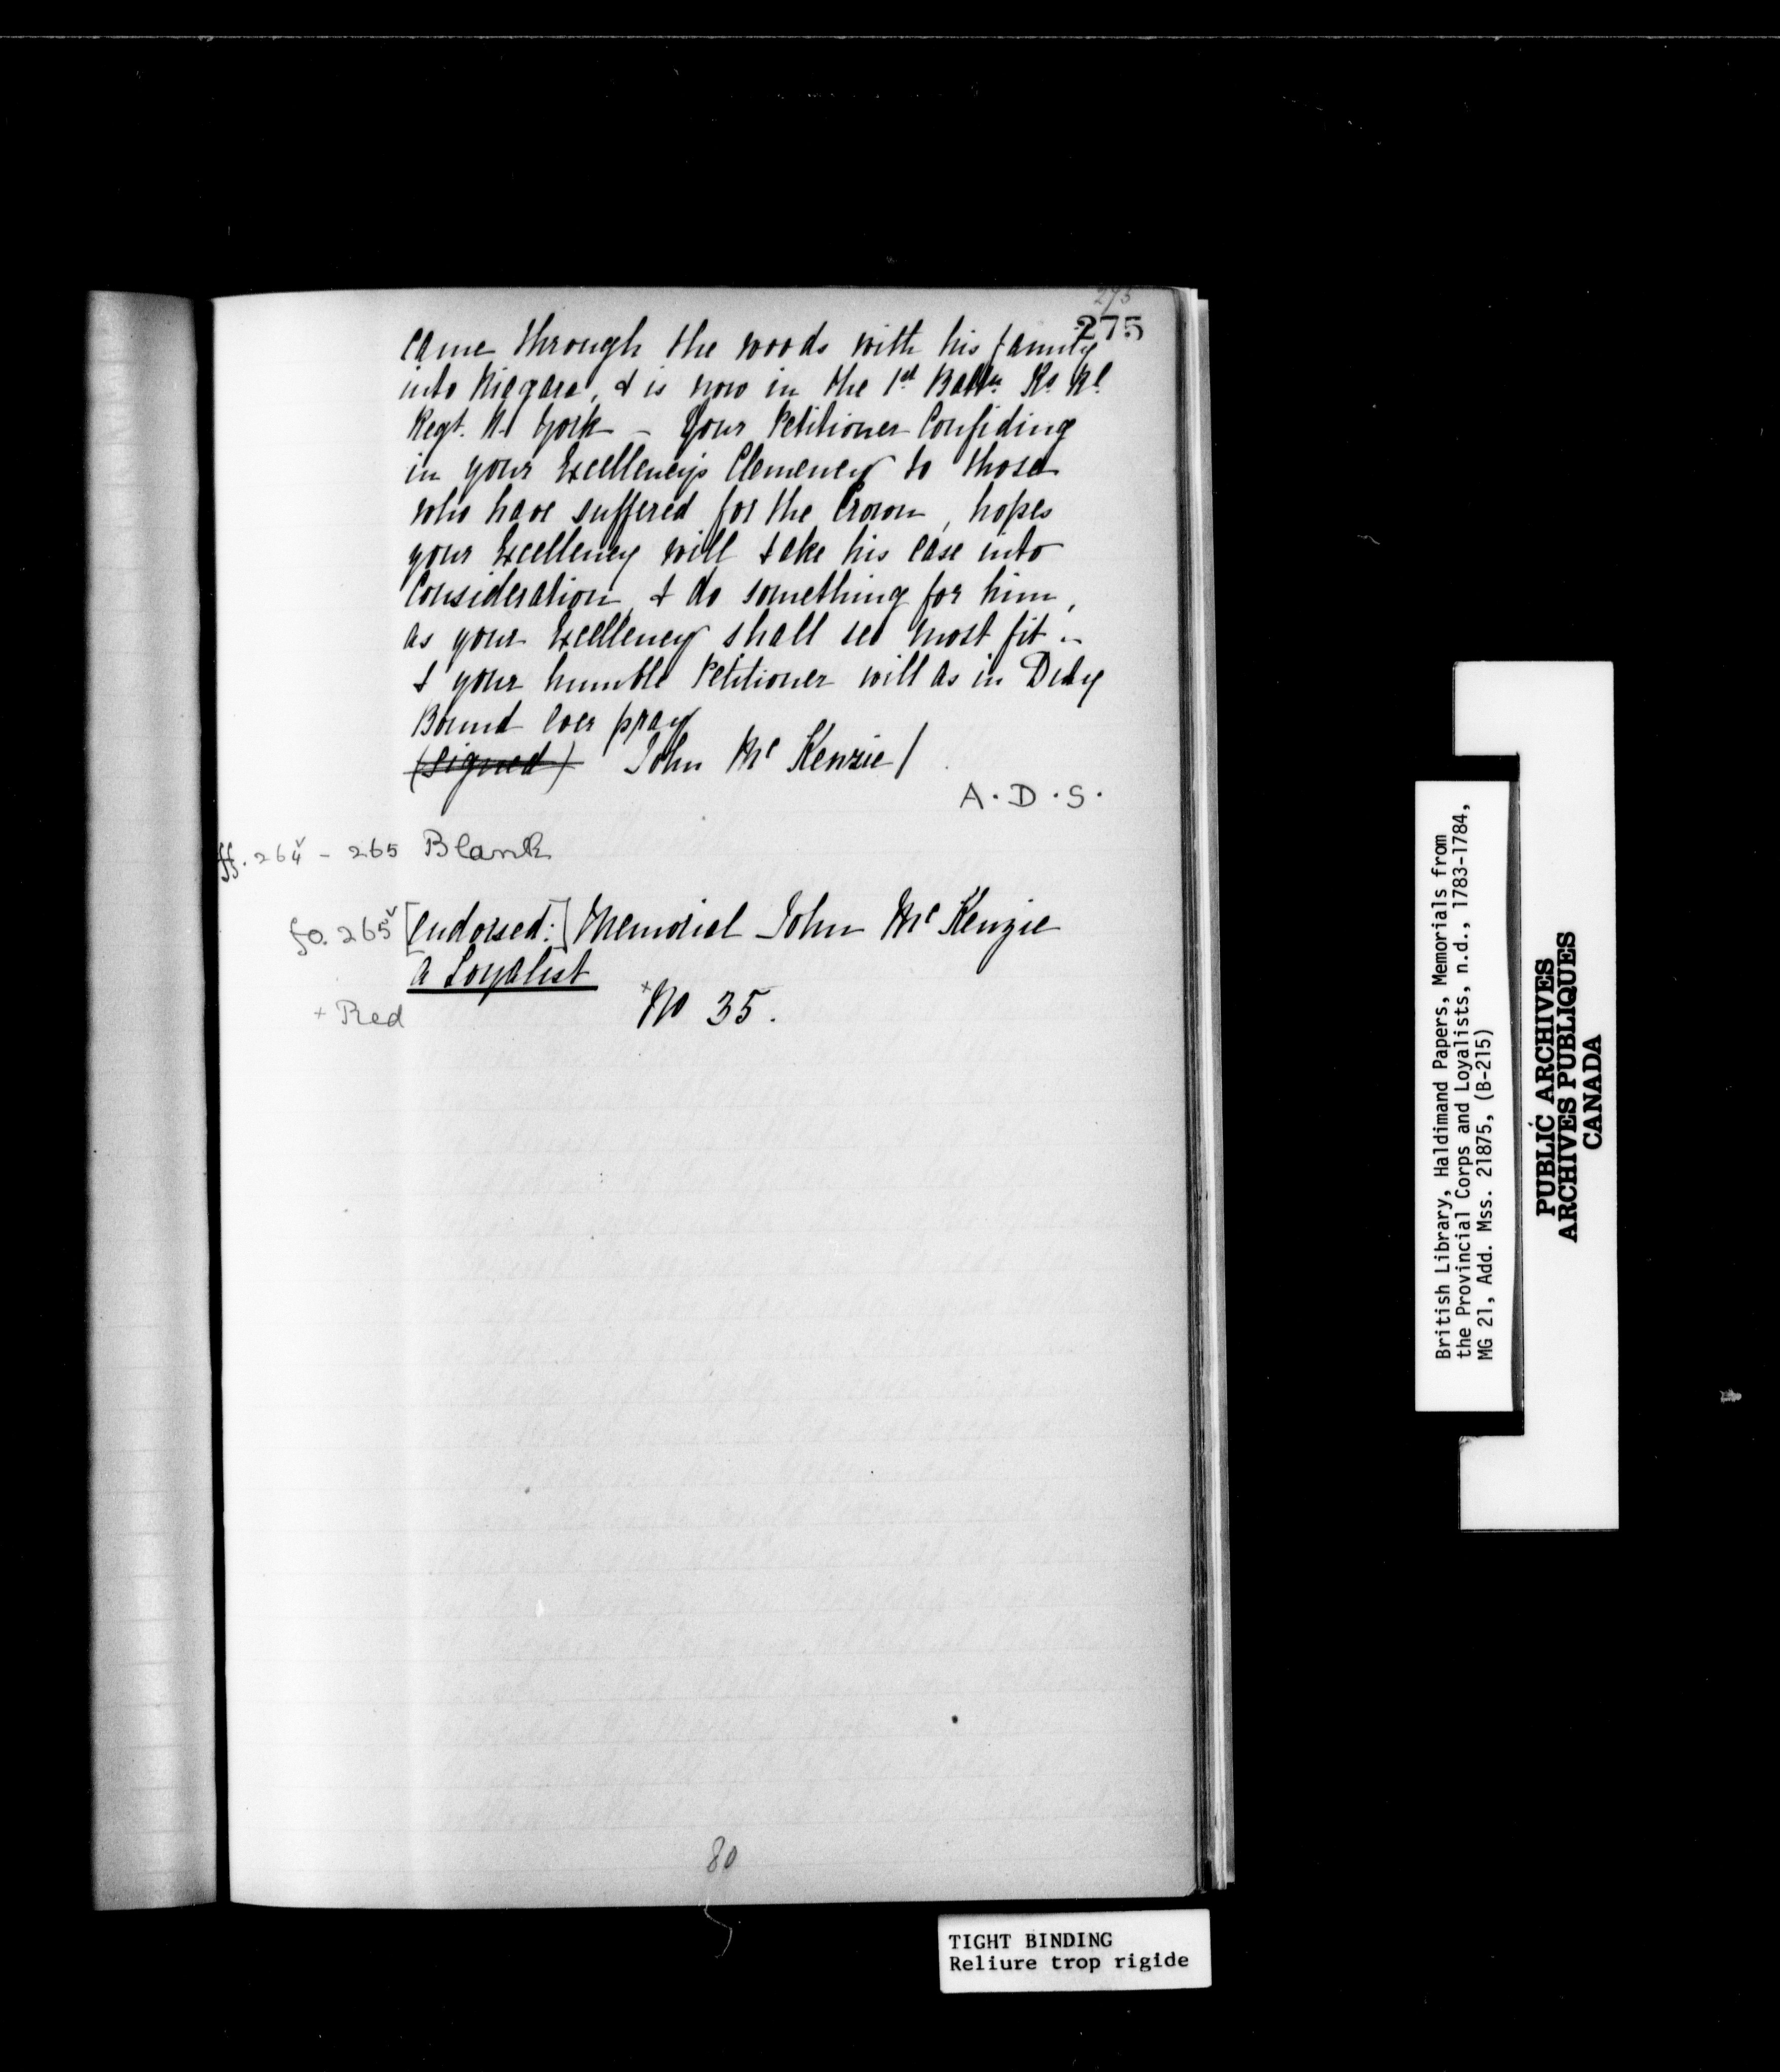 275
275
came through the woods with his family
into Niagara, & is now in the 1st Battn Ks Rl
Regt. N. York - Your Petitioner Confiding
in your Excellency's Clemency to those
who have suffered for the Crown, hopes
your Excellency will take his case into
Consideration, & do something for him,
as your Excellency shall see most fit -
& your humble Petitioner will as in Duty
Bound ever pray
(signed) John Mc Kenzie /
A. D. S.
ff. 264v - 265 Blank
fo. 265v [endorsed:] Memorial John Mc Kenzie
a Loyalist
+ Red +No 35.
80
British Library, Haldimand Papers, Memorials from
the Provincial Corps and Loyalists, n.d., 1783-1784,
MG 21, Add. Mss. 21875, (B-215)
PUBLIC ARCHIVES
ARCHIVES PUBLIQUES
CANADA
TIGHT BINDING
Reliure trop rigide